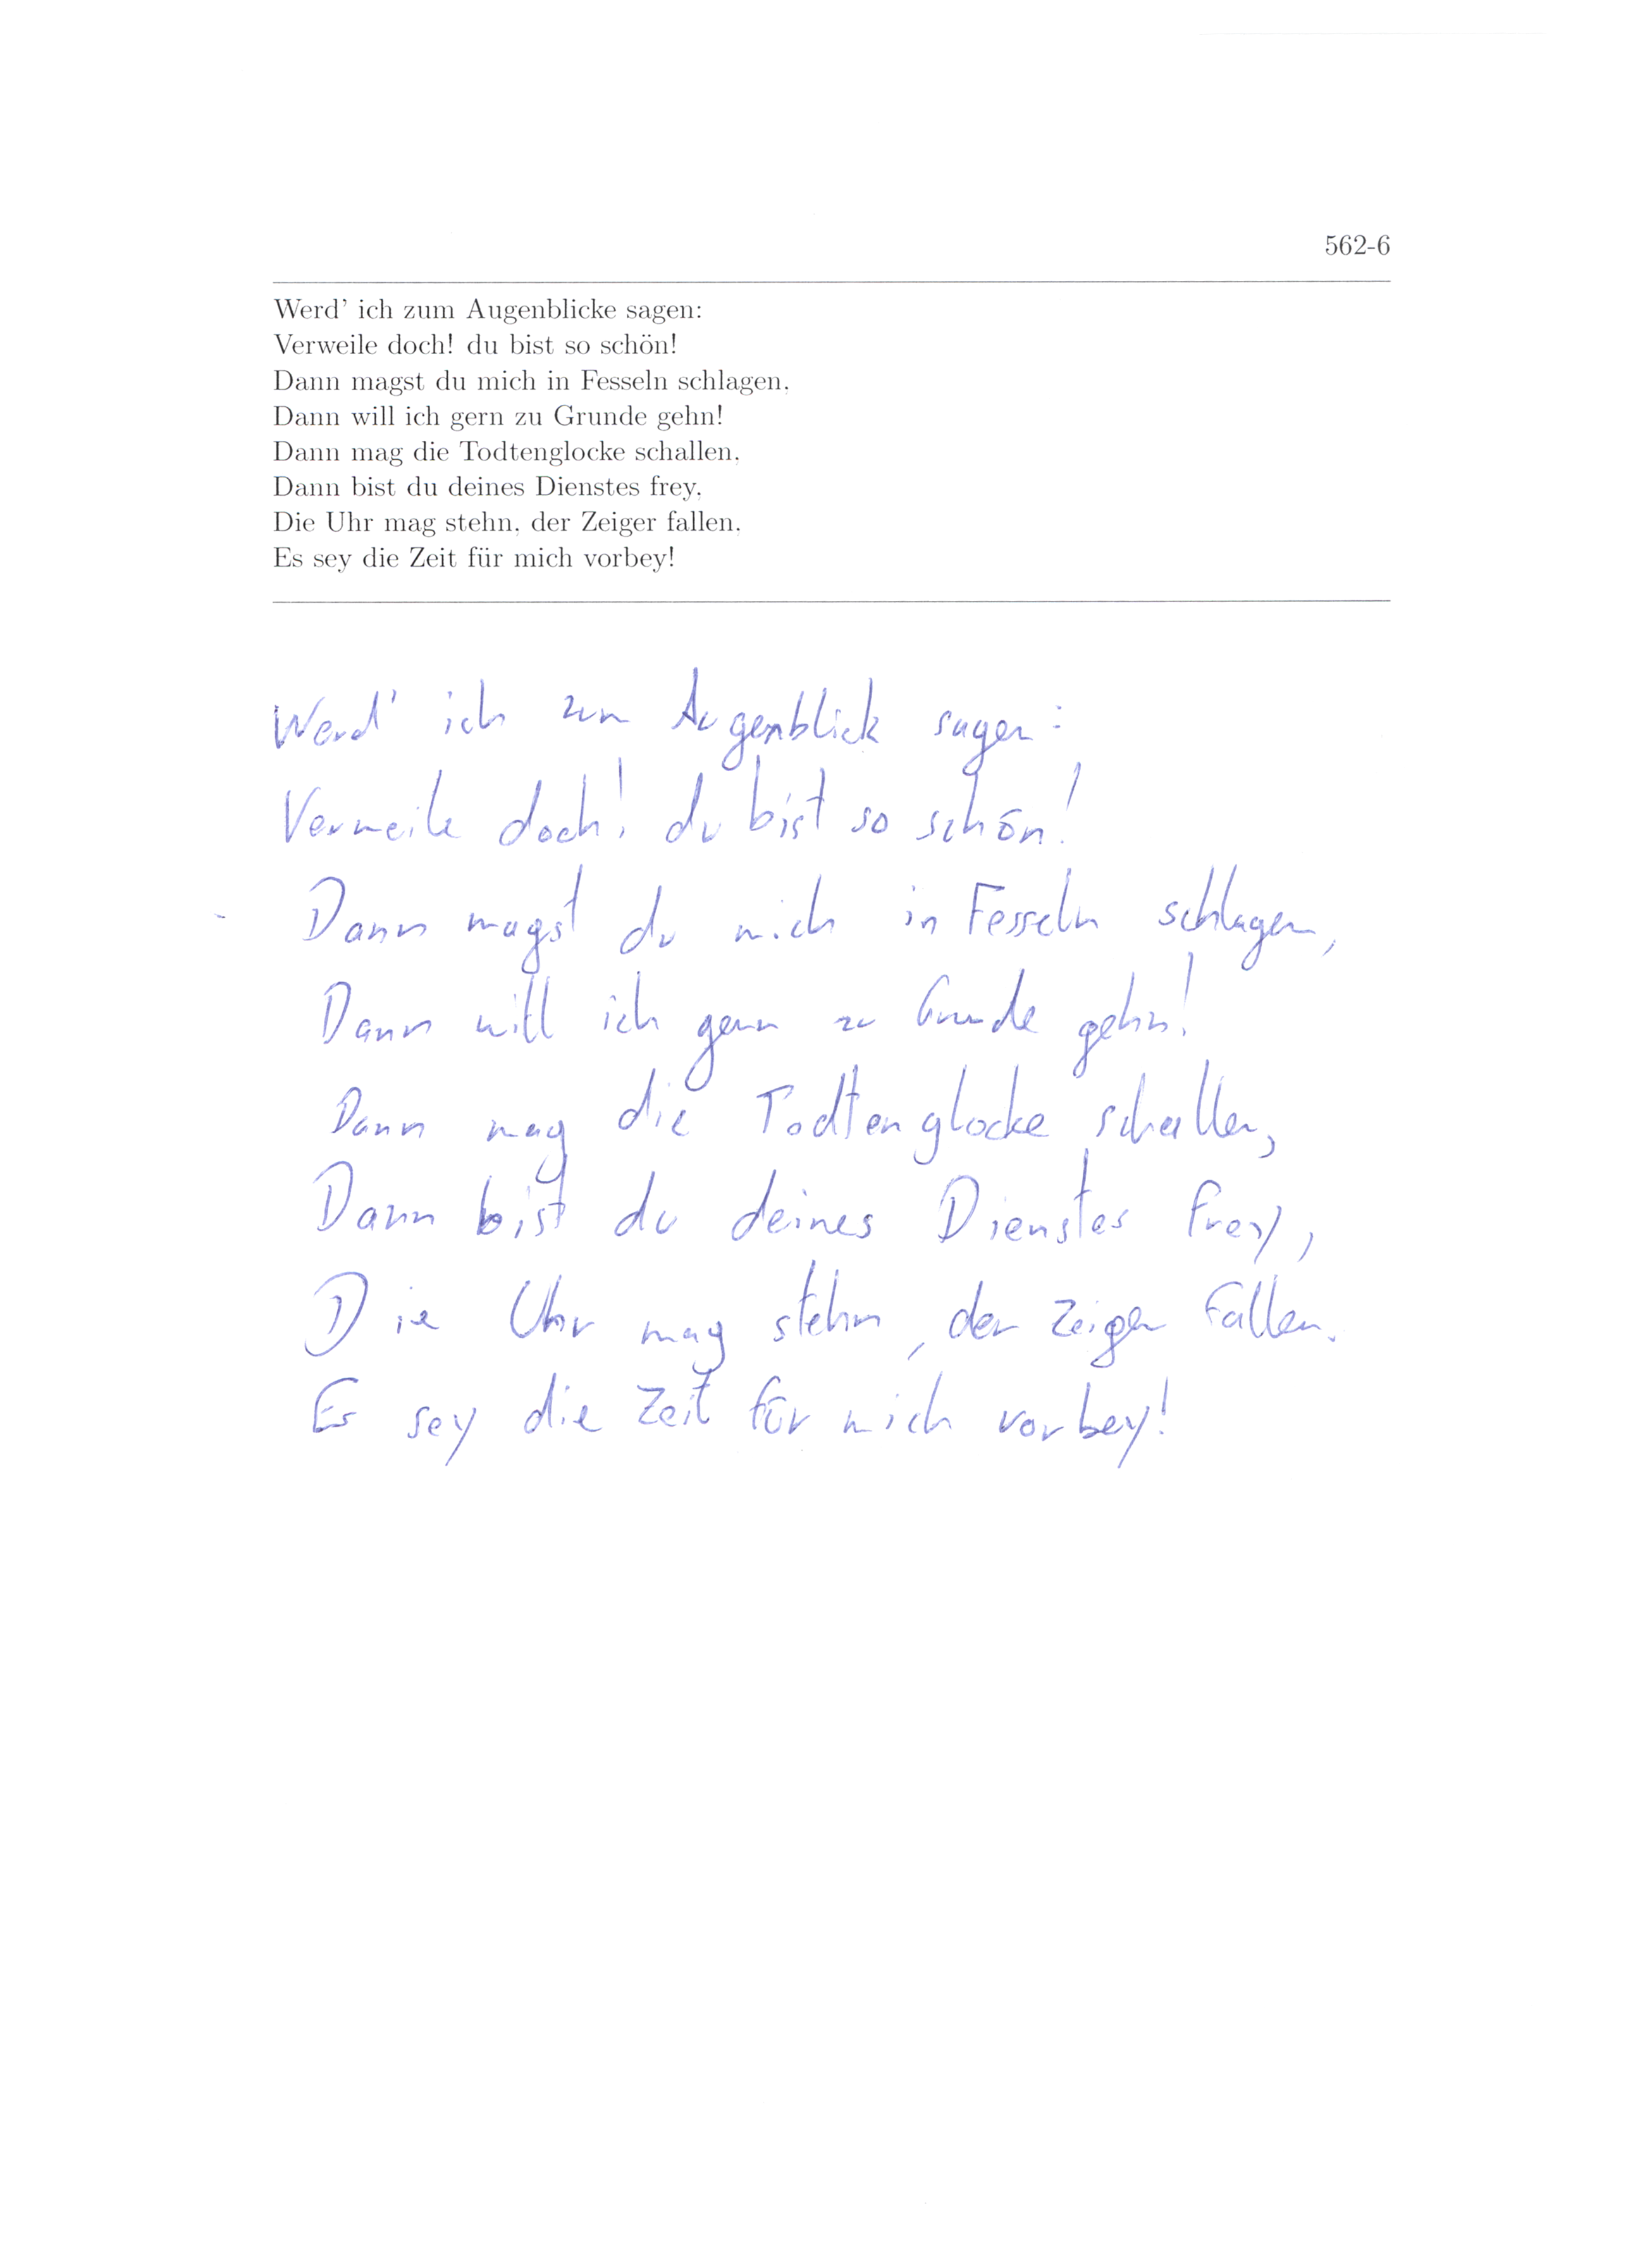 562-6
Werd' ich zum Augenblicke sagen:
Verweile doch! du bist so schön!
Dann magst du mich in Fesseln schlagen,
Dann will ich gern zu Grunde gehn!
Dann mag die Todtenglocke schallen,
Dann bist du deines Dienstes frey,
Die Uhr mag stehn, der Zeiger fallen,
Es sey die Zeit für mich vorbey!
Werd' ich zum Augenblick sagen:
Verweile doch! du bist so schön!
Dann magst du mich in Fesseln schlagen,
Dann will ich gern zu Grunde gehn!
Dann mag die Todtenglocke schallen,
Dann bist du deines Dienstes frey,
Die Uhr mag stehn, der Zeiger fallen.
Es sey die Zeit für mich vorbey!